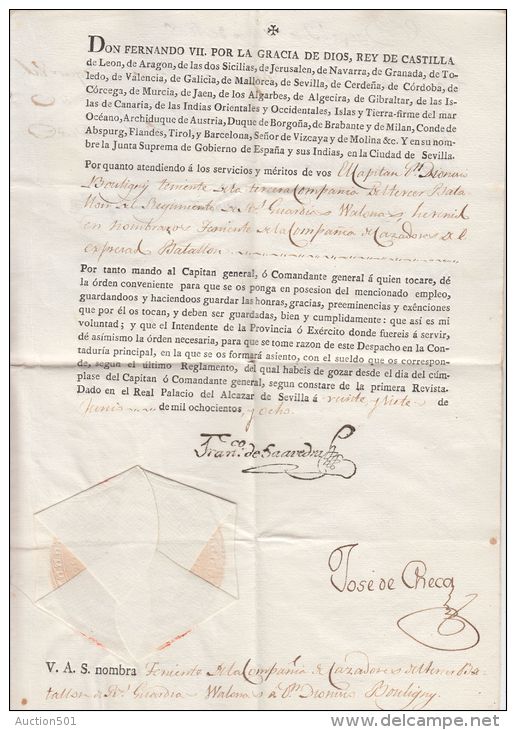 DON FERNANDO VII. POR LA GRACIA DE DIOS, REY DE CASTILLA
de Leon, de Aragon, de las dos Sicilias, de Jerusalen, de Navarra, de Granada, de To-
ledo, de Valencia, de Galicia, de Mallorca, de Sevilla, de Cerdeña, de Córdoba, de
Córcega, de Murcia, de Jaen, de los Algarbes, de Algecira, de Gibraltar, de las Is-
las de Canaria, de las Indias Orientales y Occidentales, Islas y Tierra-firme del mar
Océano, Archiduque de Austria, Duque de Borgoña, de Brabante y de Milan, Conde de
Abspurg, Flandes, Tirol, y Barcelona, Señor de Vizcaya y de Molina &c. Y en su nom-
bre la Junta Suprema de Gobierno de España y sus Indias, en la Ciudad de Sevilla.
Por quanto atendiendo á los servicios y méritos de vos el Capitan Dn. Dionisio
Bouligny teniente de la tercera Compañia del tercer Bata
llon del Regimiento de Rs. Guardias Walonas, he venid
en nombraros Teniente de la Compañia de Cazadores del
expresad Batallon.
Por tanto mando al Capitan general, ó Comandante general á quien tocare, dé
la órden conveniente para que se os ponga en posesion del mencionado empleo,
guardandoos y haciendoos guardar las honras, gracias, preeminencias y exênciones
que por él os tocan, y deben ser guardadas, bien y cumplidamente: que así es mi
voluntad; y que el Intendente de la Provincia ó Exército donde fuereis á servir,
dé asímismo la órden necesaria, para que se tome razon de este Despacho en la Con-
taduría principal, en la que se os formará asiento, con el sueldo que os correspon-
de, segun el último Reglamento, del qual habeis de gozar desde el dia del cúm-
plase del Capitan ó Comandante general, segun constare de la primera Revista.
Dado en el Real Palacio del Alcazar de Sevilla á veinte y siete de
Junio de mil ochocientos y ocho.
Franco. de Saavedra
José de Checa
V. A. S. nombra Teniente de la Compañia de Cazadores del tercer Ba-
tallon de Rs. Guardias Walonas á Dn. Dionisio Bouligny.
Auction501
delcampe.net